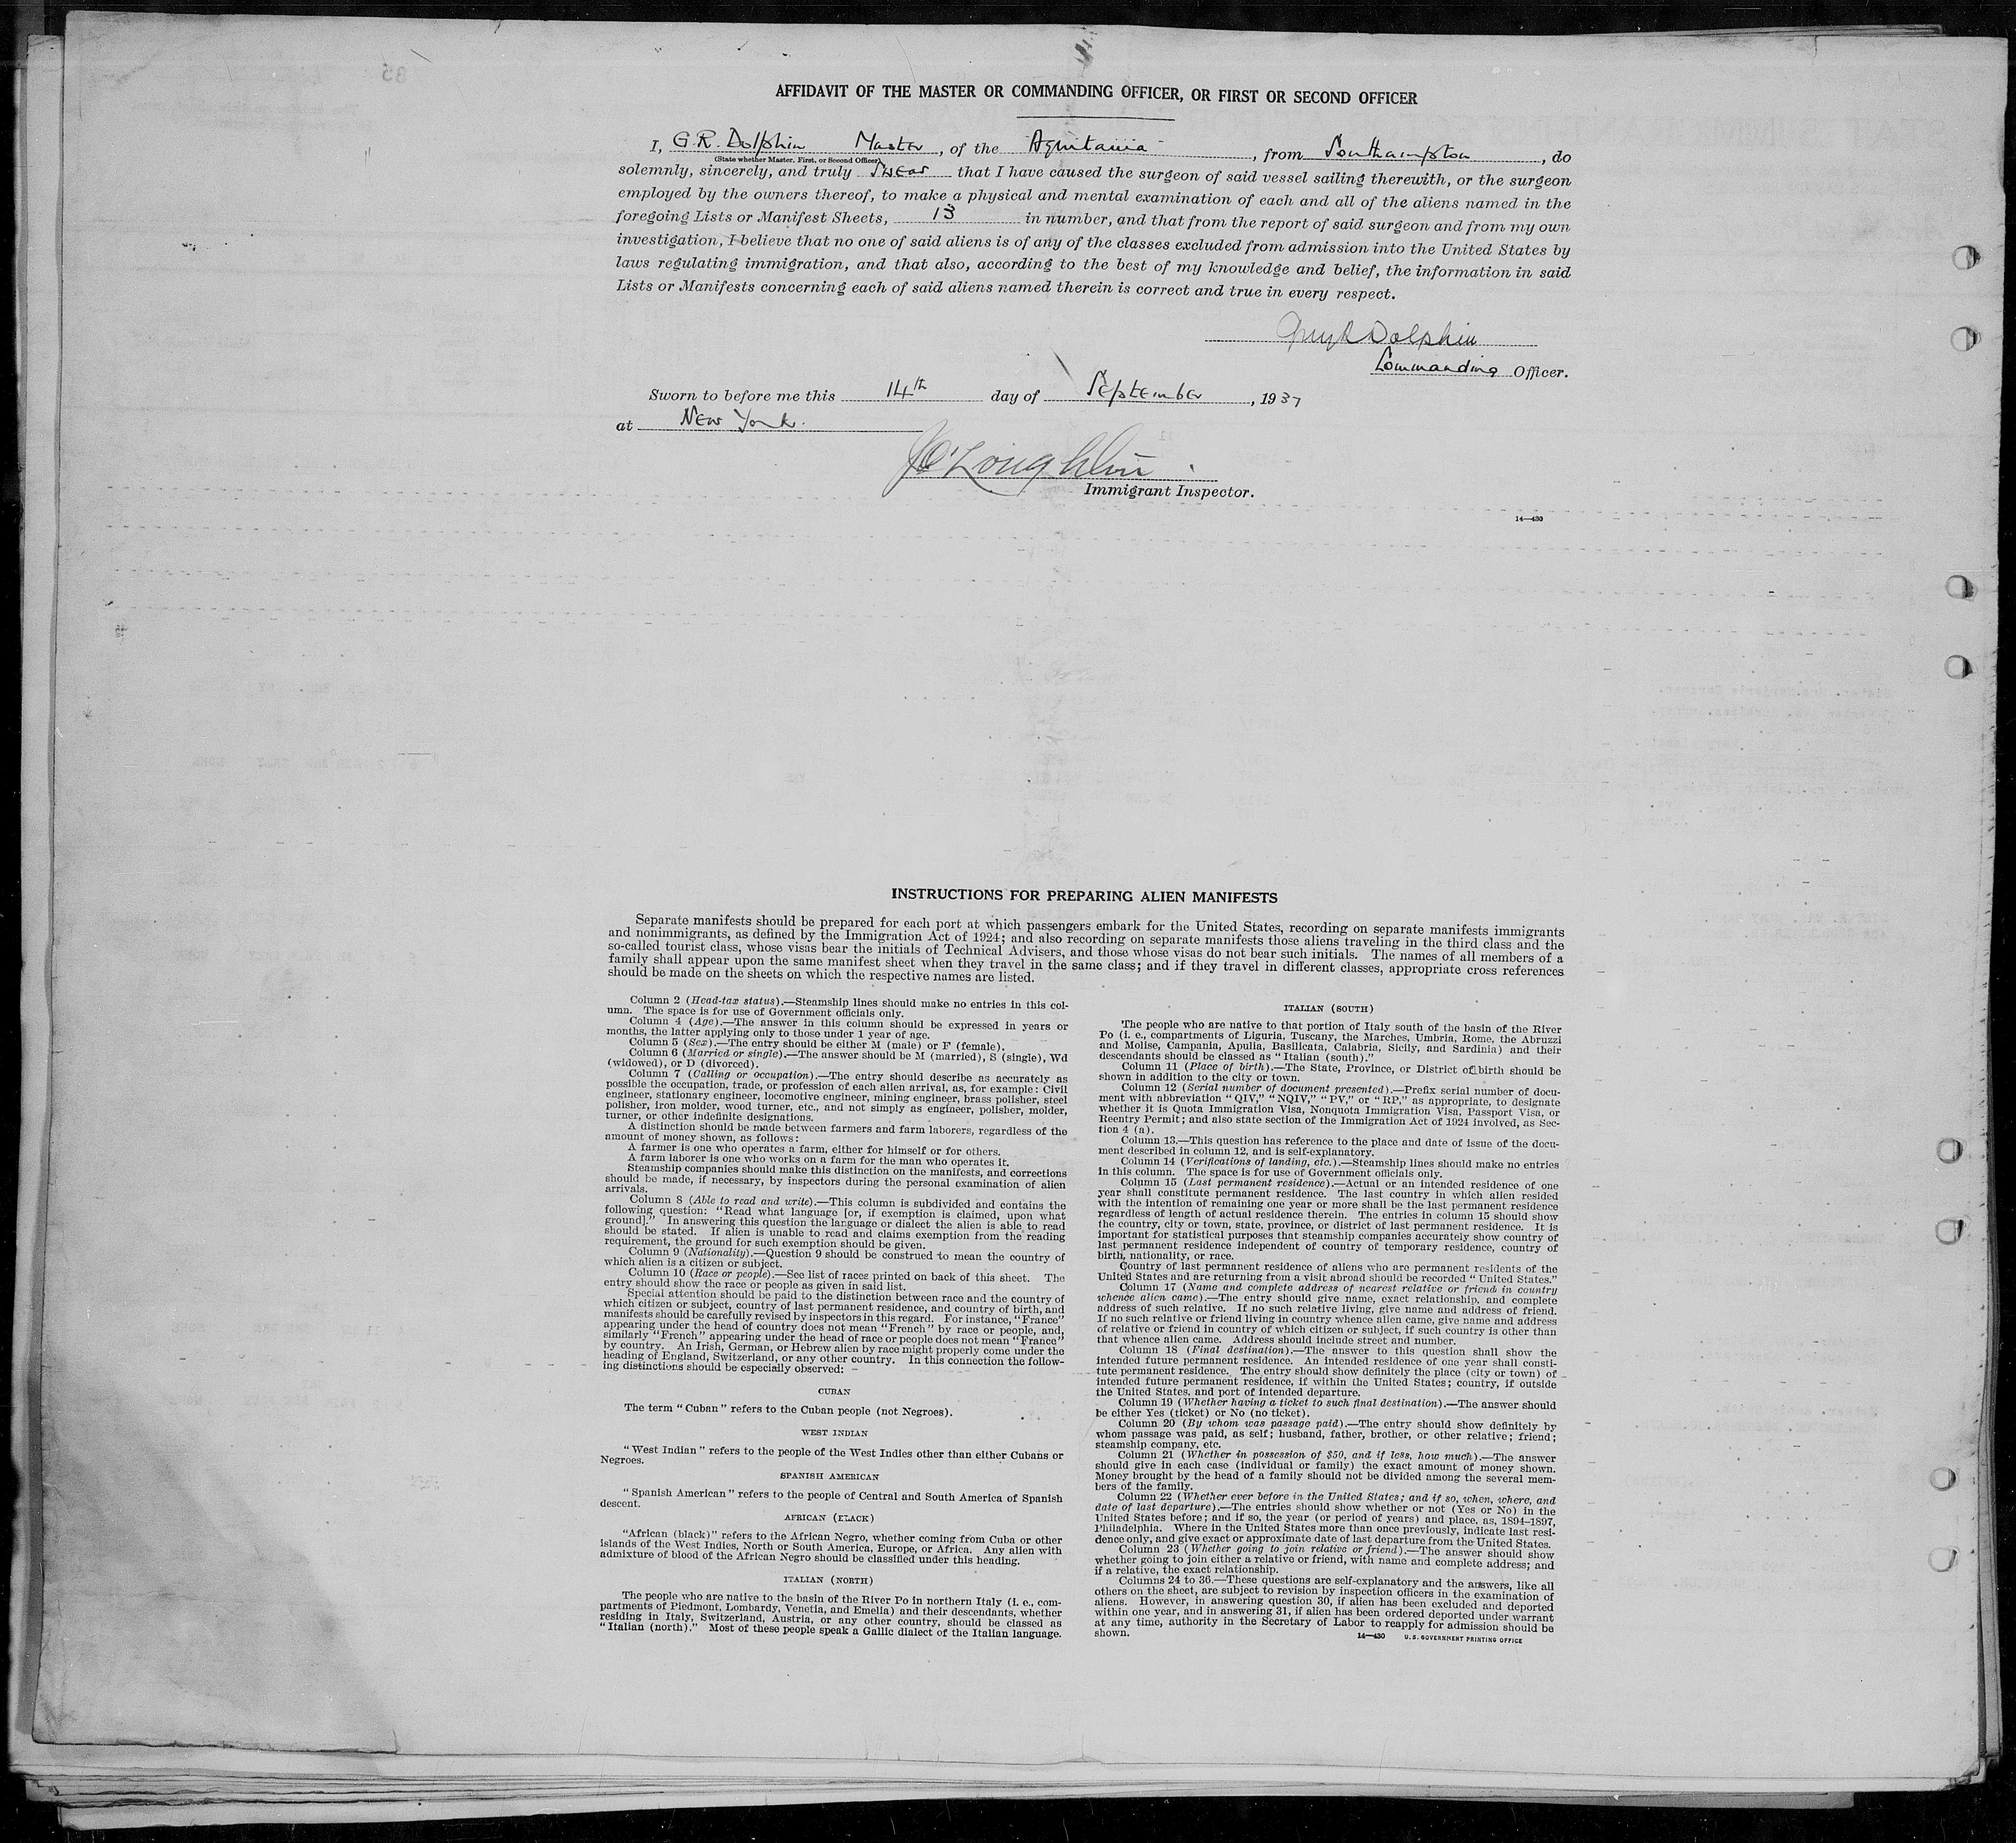 AFFIDAVIT OF THE MASTER OR COMMANDING OFFICER, OR FIRST OR SECOND OFFICER
I, G. R. Dolphin Master, of the Aquitania, from Southampton, do
(State whether Master, First, or Second Officer)
solemnly, sincerely, and truly swear that I have caused the surgeon of said vessel sailing therewith, or the surgeon
employed by the owners thereof, to make a physical and mental examination of each and all of the aliens named in the
foregoing Lists or Manifest Sheets, 13 in number, and that from the report of said surgeon and from my own
investigation, I believe that no one of said aliens is of any of the classes excluded from admission into the United States by
laws regulating immigration, and that also, according to the best of my knowledge and belief, the information in said
Lists or Manifests concerning each of said aliens named therein is correct and true in every respect.
Dolphin
Commanding Officer.
Sworn to before me this 14th day of September, 1937
at New York.
O'Loughlin
Immigrant Inspector.
14—430
INSTRUCTIONS FOR PREPARING ALIEN MANIFESTS
Separate manifests should be prepared for each port at which passengers embark for the United States, recording on separate manifests immigrants
and nonimmigrants, as defined by the Immigration Act of 1924; and also recording on separate manifests those aliens traveling in the third class and the
so-called tourist class, whose visas bear the initials of Technical Advisers, and those whose visas do not bear such initials. The names of all members of a
family shall appear upon the same manifest sheet when they travel in the same class; and if they travel in different classes, appropriate cross references
should be made on the sheets on which the respective names are listed.
Column 2 (Head-tax status).—Steamship lines should make no entries in this col-
umn. The space is for use of Government officials only.
Column 4 (Age).—The answer in this column should be expressed in years or
months, the latter applying only to those under 1 year of age.
Column 5 (Sex).—The entry should be either M (male) or F (female).
Column 6 (Married or single).—The answer should be M (married), S (single), Wd
(widowed), or D (divorced).
Column 7 (Calling or occupation).—The entry should describe as accurately as
possible the occupation, trade, or profession of each alien arrival, as, for example: Civil
engineer, stationary engineer, locomotive engineer, mining engineer, brass polisher, steel
polisher, iron molder, wood turner, etc., and not simply as engineer, polisher, molder,
turner, or other indefinite designations.
A distinction should be made between farmers and farm laborers, regardless of the
amount of money shown, as follows:
A farmer is one who operates a farm, either for himself or for others.
A farm laborer is one who works on a farm for the man who operates it.
Steamship companies should make this distinction on the manifests, and corrections
should be made, if necessary, by inspectors during the personal examination of alien
arrivals.
Column 8 (Able to read and write).—This column is subdivided and contains the
following question: "Read what language [or, if exemption is claimed, upon what
ground]." In answering this question the language or dialect the alien is able to read
should be stated. If alien is unable to read and claims exemption from the reading
requirement, the ground for such exemption should be given.
Column 9 (Nationality).—Question 9 should be construed to mean the country of
which alien is a citizen or subject.
Column 10 (Race or people).—See list of races printed on back of this sheet. The
entry should show the race or people as given in said list.
Special attention should be paid to the distinction between race and the country of
which citizen or subject, country of last permanent residence, and country of birth, and
manifests should be carefully revised by inspectors in this regard. For instance, "France"
appearing under the head of country does not mean "French" by race or people, and,
similarly "French" appearing under the head of race or people does not mean "France"
by country. An Irish, German, or Hebrew alien by race might properly come under the
heading of England, Switzerland, or any other country. In this connection the follow-
ing distinctions should be especially observed:
CUBAN
The term "Cuban" refers to the Cuban people (not Negroes).
WEST INDIAN
"West Indian" refers to the people of the West Indies other than either Cubans or
Negroes.
SPANISH AMERICAN
"Spanish American" refers to the people of Central and South America of Spanish
descent.
AFRICAN (BLACK)
"African (black)" refers to the African Negro, whether coming from Cuba or other
islands of the West Indies, North or South America, Europe, or Africa. Any alien with
admixture of blood of the African Negro should be classified under this heading.
ITALIAN (NORTH)
The people who are native to the basin of the River Po in northern Italy (i. e., com-
partments of Piedmont, Lombardy, Venetia, and Emelia) and their descendants, whether
residing in Italy, Switzerland, Austria, or any other country, should be classed as
"Italian (north)." Most of these people speak a Gallic dialect of the Italian language.
ITALIAN (SOUTH)
The people who are native to that portion of Italy south of the basin of the River
Po (i. e., compartments of Liguria, Tuscany, the Marches, Umbria, Rome, the Abruzzi
and Molise, Campania, Apulia, Basilicata, Calabria, Sicily, and Sardinia) and their
descendants should be classed as "Italian (south)."
Column 11 (Place of birth).—The State, Province, or District of birth should be
shown in addition to the city or town.
Column 12 (Serial number of document presented).—Prefix serial number of docu-
ment with abbreviation "QIV," "NQIV," "PV," or "RP," as appropriate, to designate
whether it is Quota Immigration Visa, Nonquota Immigration Visa, Passport Visa, or
Reentry Permit; and also state section of the Immigration Act of 1924 involved, as Sec-
tion 4 (a).
Column 13.—This question has reference to the place and date of issue of the docu-
ment described in column 12, and is self-explanatory.
Column 14 (Verifications of landing, etc.).—Steamship lines should make no entries
in this column. The space is for use of Government officials only.
Column 15 (Last permanent residence).—Actual or an intended residence of one
year shall constitute permanent residence. The last country in which alien resided
with the intention of remaining one year or more shall be the last permanent residence
regardless of length of actual residence therein. The entries in column 15 should show
the country, city or town, state, province, or district of last permanent residence. It is
important for statistical purposes that steamship companies accurately show country of
last permanent residence independent of country of temporary residence, country of
birth, nationality, or race.
Country of last permanent residence of aliens who are permanent residents of the
United States and are returning from a visit abroad should be recorded "United States."
Column 17 (Name and complete address of nearest relative or friend in country
whence alien came).—The entry should give name, exact relationship, and complete
address of such relative. If no such relative living, give name and address of friend.
If no such relative or friend living in country whence alien came, give name and address
of relative or friend in country of which citizen or subject, if such country is other than
that whence alien came. Address should include street and number.
Column 18 (Final destination).—The answer to this question shall show the
intended future permanent residence. An intended residence of one year shall consti-
tute permanent residence. The entry should show definitely the place (city or town) of
intended future permanent residence, if within the United States; country, if outside
the United States, and port of intended departure.
Column 19 (Whether having a ticket to such final destination).—The answer should
be either Yes (ticket) or No (no ticket).
Column 20 (By whom was passage paid).—The entry should show definitely by
whom passage was paid, as self; husband, father, brother, or other relative; friend;
steamship company, etc.
Column 21 (Whether in possession of $50, and if less, how much).—The answer
should give in each case (individual or family) the exact amount of money shown.
Money brought by the head of a family should not be divided among the several mem-
bers of the family.
Column 22 (Whether ever before in the United States; and if so, when, where, and
date of last departure).—The entries should show whether or not (Yes or No) in the
United States before; and if so, the year (or period of years) and place, as, 1894–1897,
Philadelphia. Where in the United States more than once previously, indicate last resi-
dence only, and give exact or approximate date of last departure from the United States.
Column 23 (Whether going to join relative or friend).—The answer should show
whether going to join either a relative or friend, with name and complete address; and
if a relative, the exact relationship.
Columns 24 to 36.—These questions are self-explanatory and the answers, like all
others on the sheet, are subject to revision by inspection officers in the examination of
aliens. However, in answering question 30, if alien has been excluded and deported
within one year, and in answering 31, if alien has been ordered deported under warrant
at any time, authority in the Secretary of Labor to reapply for admission should be
shown.
14—430 U.S. GOVERNMENT PRINTING OFFICE